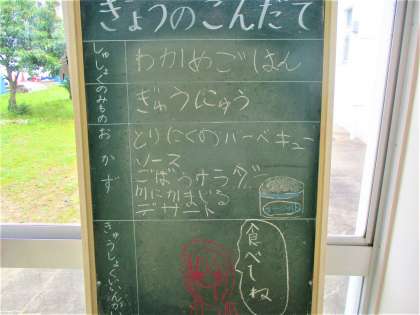 きょうのこんだて
しゅしょく
わかめごはん
のみもの
ぎゅうにゅう
おかず
とりにくのバーベキュー
ソース
ごぼうサラダ
デザート
きゅうしょくいいんか
食べてね